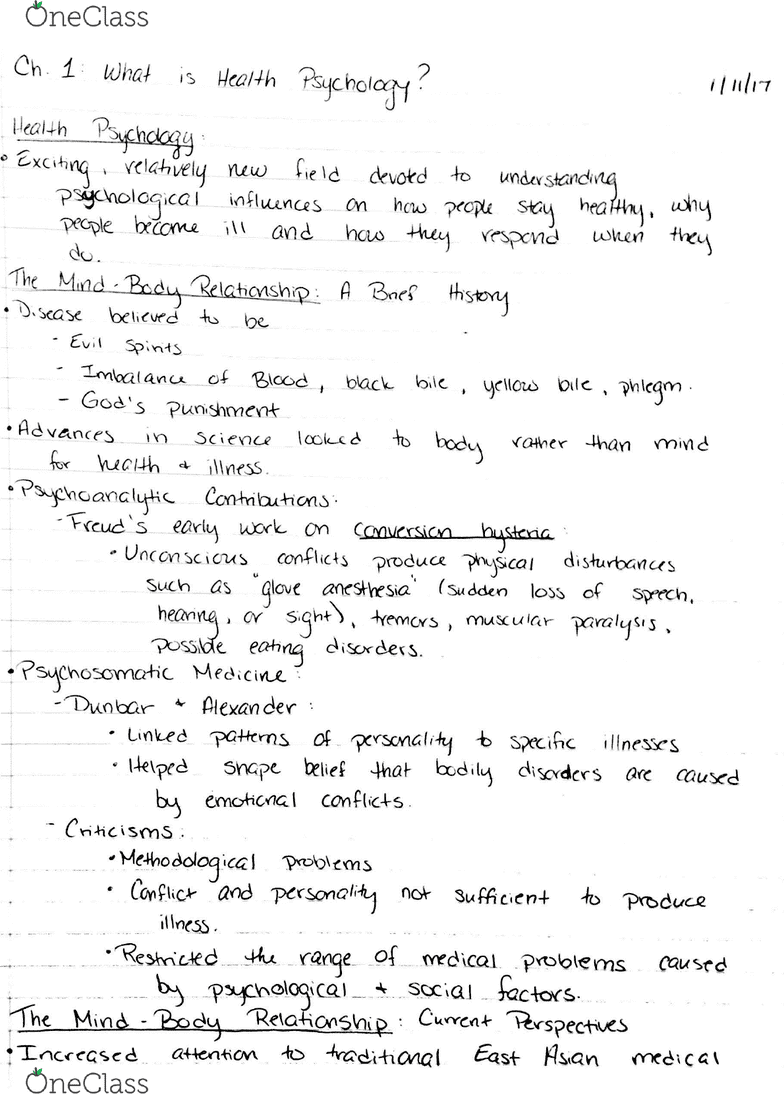 OneClass
Ch. 1: What is Health Psychology?
1/11/17
Health Psychology:
• Exciting, relatively new field devoted to understanding
psychological influences on how people stay healthy, why
people become ill and how they respond when they
do.
The Mind-Body Relationship: A Brief History
• Disease believed to be
- Evil Spirits
- Imbalance of Blood, black bile, yellow bile, phlegm.
- God's punishment
• Advances in science looked to body rather than mind
for health + illness.
• Psychoanalytic Contributions:
- Freud's early work on conversion hysteria:
• Unconscious conflicts produce physical disturbances
such as "glove anesthesia" (sudden loss of speech,
hearing, or sight), tremors, muscular paralysis,
possible eating disorders.
• Psychosomatic Medicine:
- Dunbar + Alexander:
• Linked patterns of personality to specific illnesses
• Helped shape belief that bodily disorders are caused
by emotional conflicts.
- Criticisms:
• Methodological problems
• Conflict and personality not sufficient to produce
illness.
• Restricted the range of medical problems caused
by psychological + social factors.
The Mind-Body Relationship: Current Perspectives
• Increased attention to traditional East Asian medical
OneClass